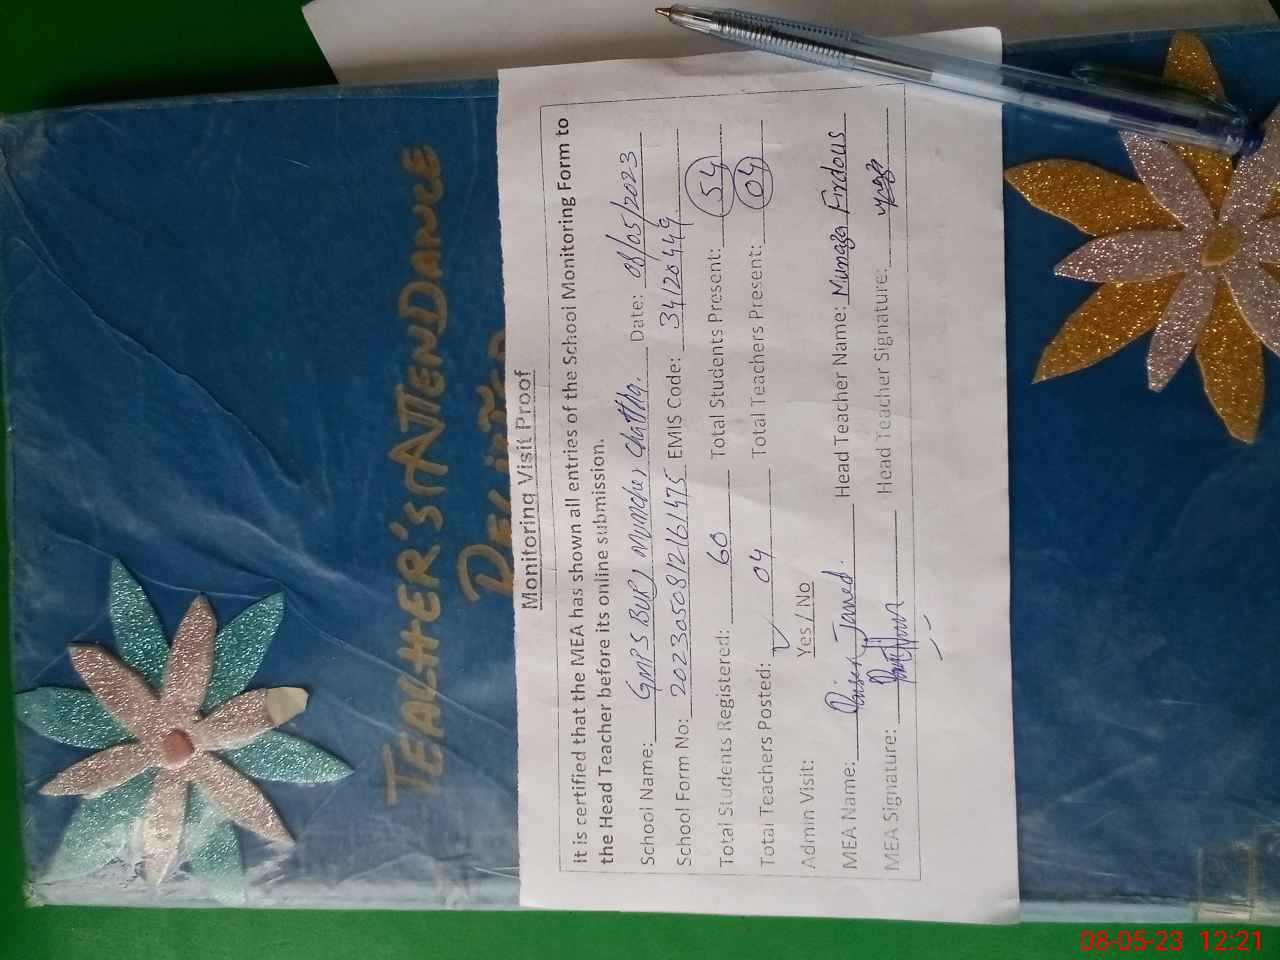 TEACHER'S ATTENDANCE
Monitoring Visit Proof
It is certified that the MEA has shown all entries of the School Monitoring Form to
the Head Teacher before its online submission.
School Name: GMPS Chattha. Date: 08/05/2023
School Form No: 2023050812161475 EMIS Code: 34120449
Total Students Registered: 60 Total Students Present: 54
Total Teachers Posted: 04 Total Teachers Present: 04
Admin Visit: Yes / No
MEA Name: Head Teacher Name: Firdous
MEA Signature: Head Teacher Signature:
08-05-23 12:21